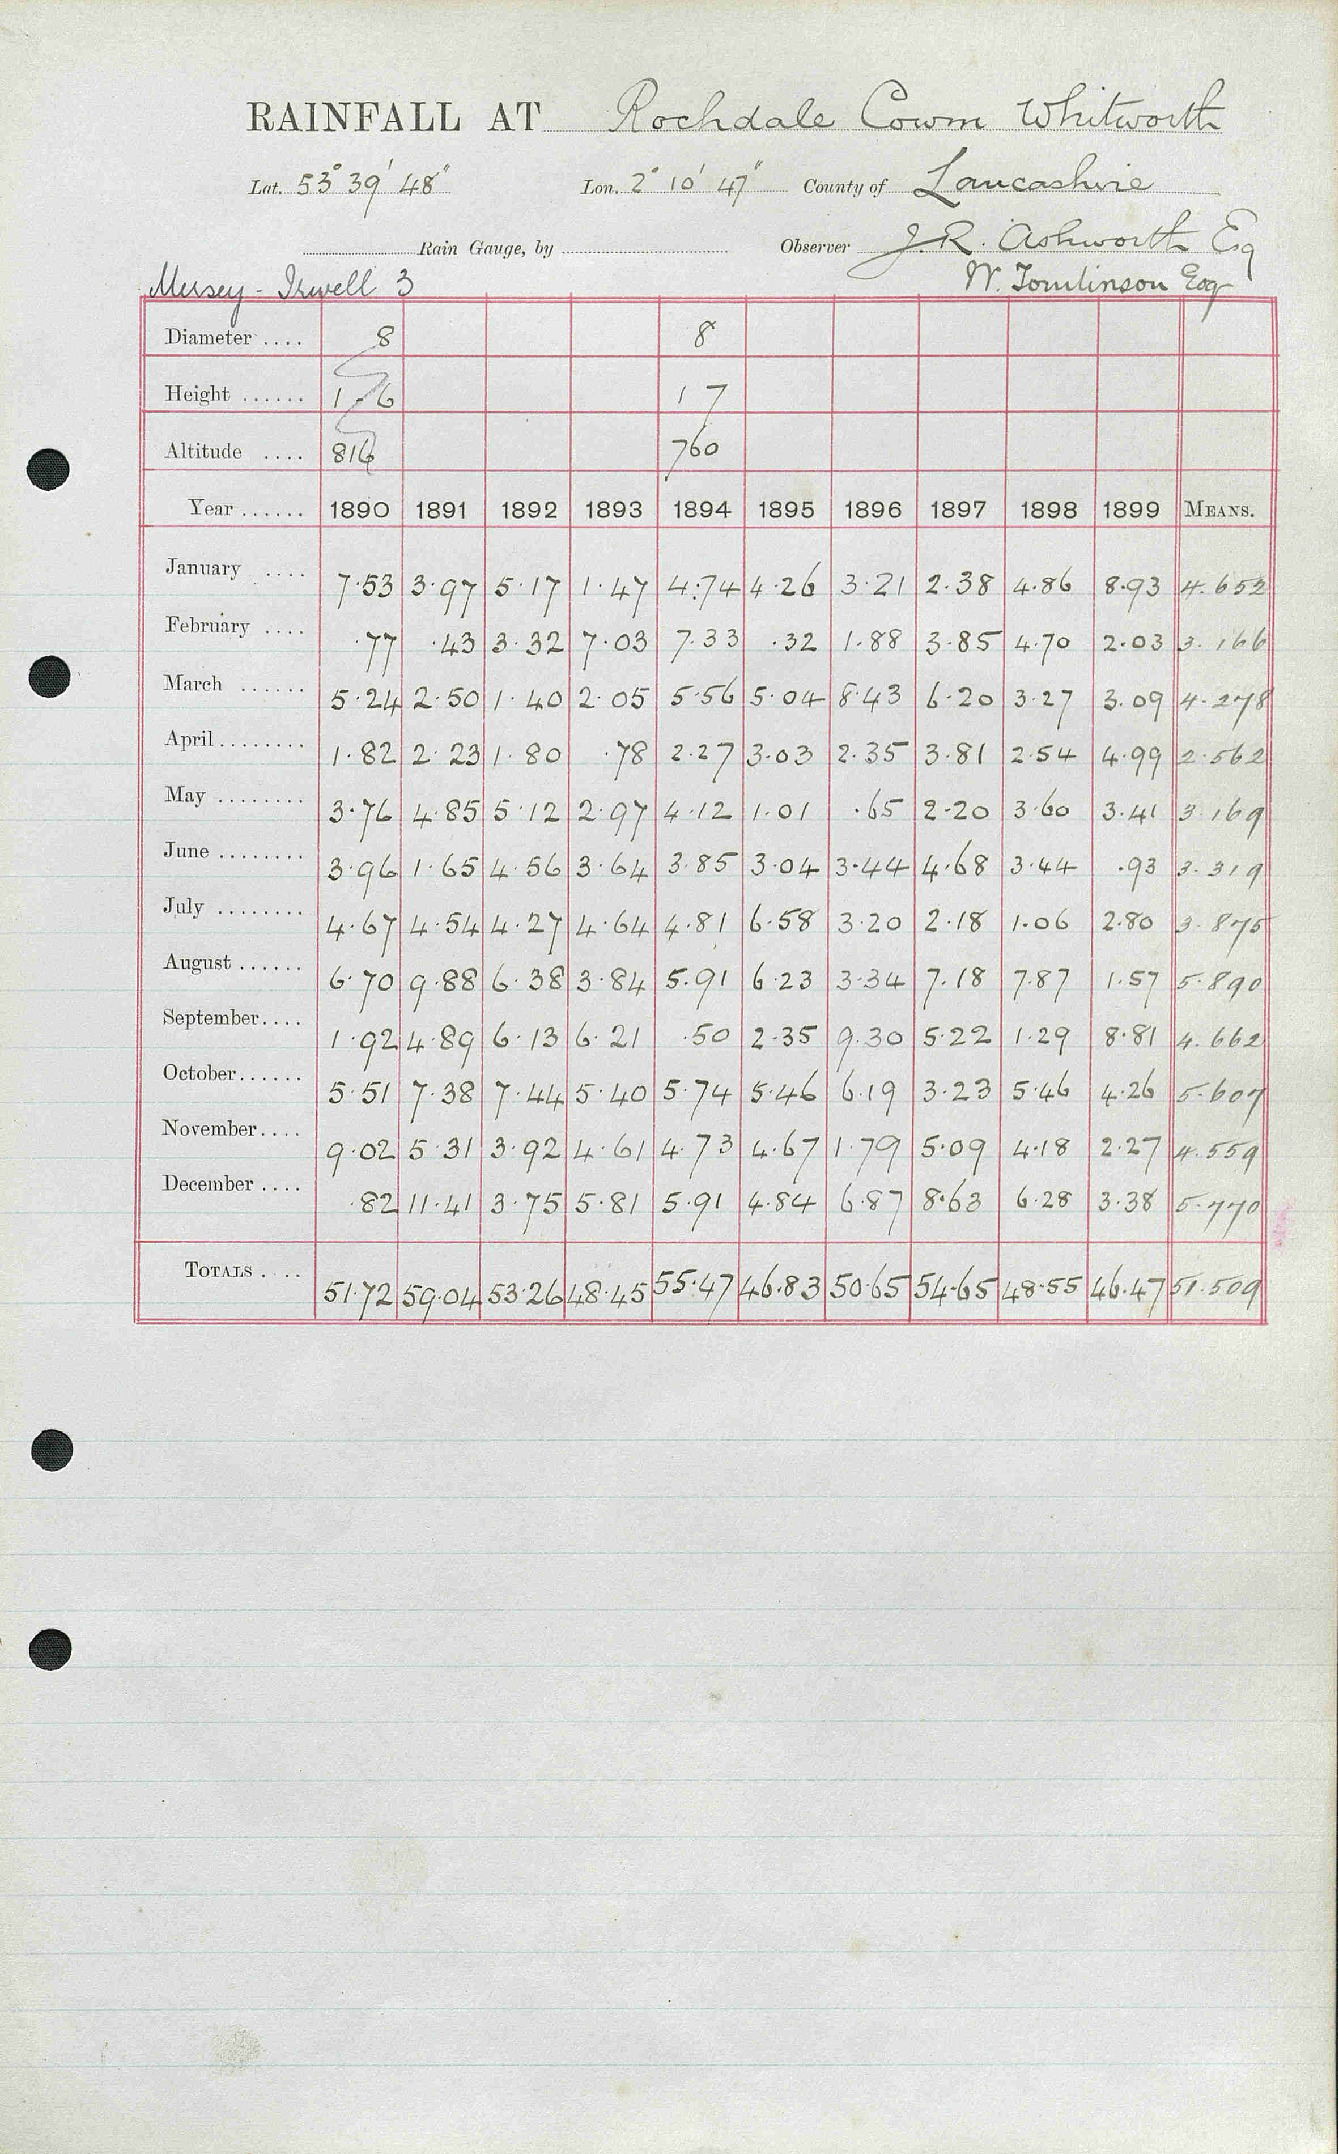 RAINFALL AT Rochdale Cowm Whitworth
Lat. 53° 39' 48" Lon. 2° 10' 47" County of Lancashire
Rain Gauge, by Observer J.R. Ashworth Esq
Mersey - Irwell 3 W. Tomlinson Esq
Diameter .... 8 8
Height ...... 1 - 6 1 7
Altitude .... 816 760
Year ...... 1890 1891 1892 1893 1894 1895 1896 1897 1898 1899 MEANS.
January .... 7.53 3.97 5.17 1.47 4.74 4.26 3.21 2.38 4.86 8.93 4.652
February .... .77 .43 3.32 7.03 7.33 .32 1.88 3.85 4.70 2.03 3.166
March ...... 5.24 2.50 1.40 2.05 5.56 5.04 8.43 6.20 3.27 3.09 4.278
April ........ 1.82 2.23 1.80 .78 2.27 3.03 2.35 3.81 2.54 4.99 2.562
May ........ 3.76 4.85 5.12 2.97 4.12 1.01 .65 2.20 3.60 3.41 3.169
June ........ 3.96 1.65 4.56 3.64 3.85 3.04 3.44 4.68 3.44 .93 3.319
July ........ 4.67 4.54 4.27 4.64 4.81 6.58 3.20 2.18 1.06 2.80 3.875
August ...... 6.70 9.88 6.38 3.84 5.91 6.23 3.34 7.18 7.87 1.57 5.890
September .... 1.92 4.89 6.13 6.21 .50 2.35 9.30 5.22 1.29 8.81 4.662
October ...... 5.51 7.38 7.44 5.40 5.74 5.46 6.19 3.23 5.46 4.26 5.607
November .... 9.02 5.31 3.92 4.61 4.73 4.67 1.79 5.09 4.18 2.27 4.559
December .... .82 11.41 3.75 5.81 5.91 4.84 6.87 8.63 6.28 3.38 5.770
TOTALS .... 51.72 59.04 53.26 48.45 55.47 46.83 50.65 54.65 48.55 46.47 51.509